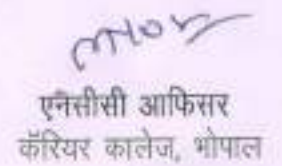 एनसीसी आफिसर
कॅरियर कालेज, भोपाल